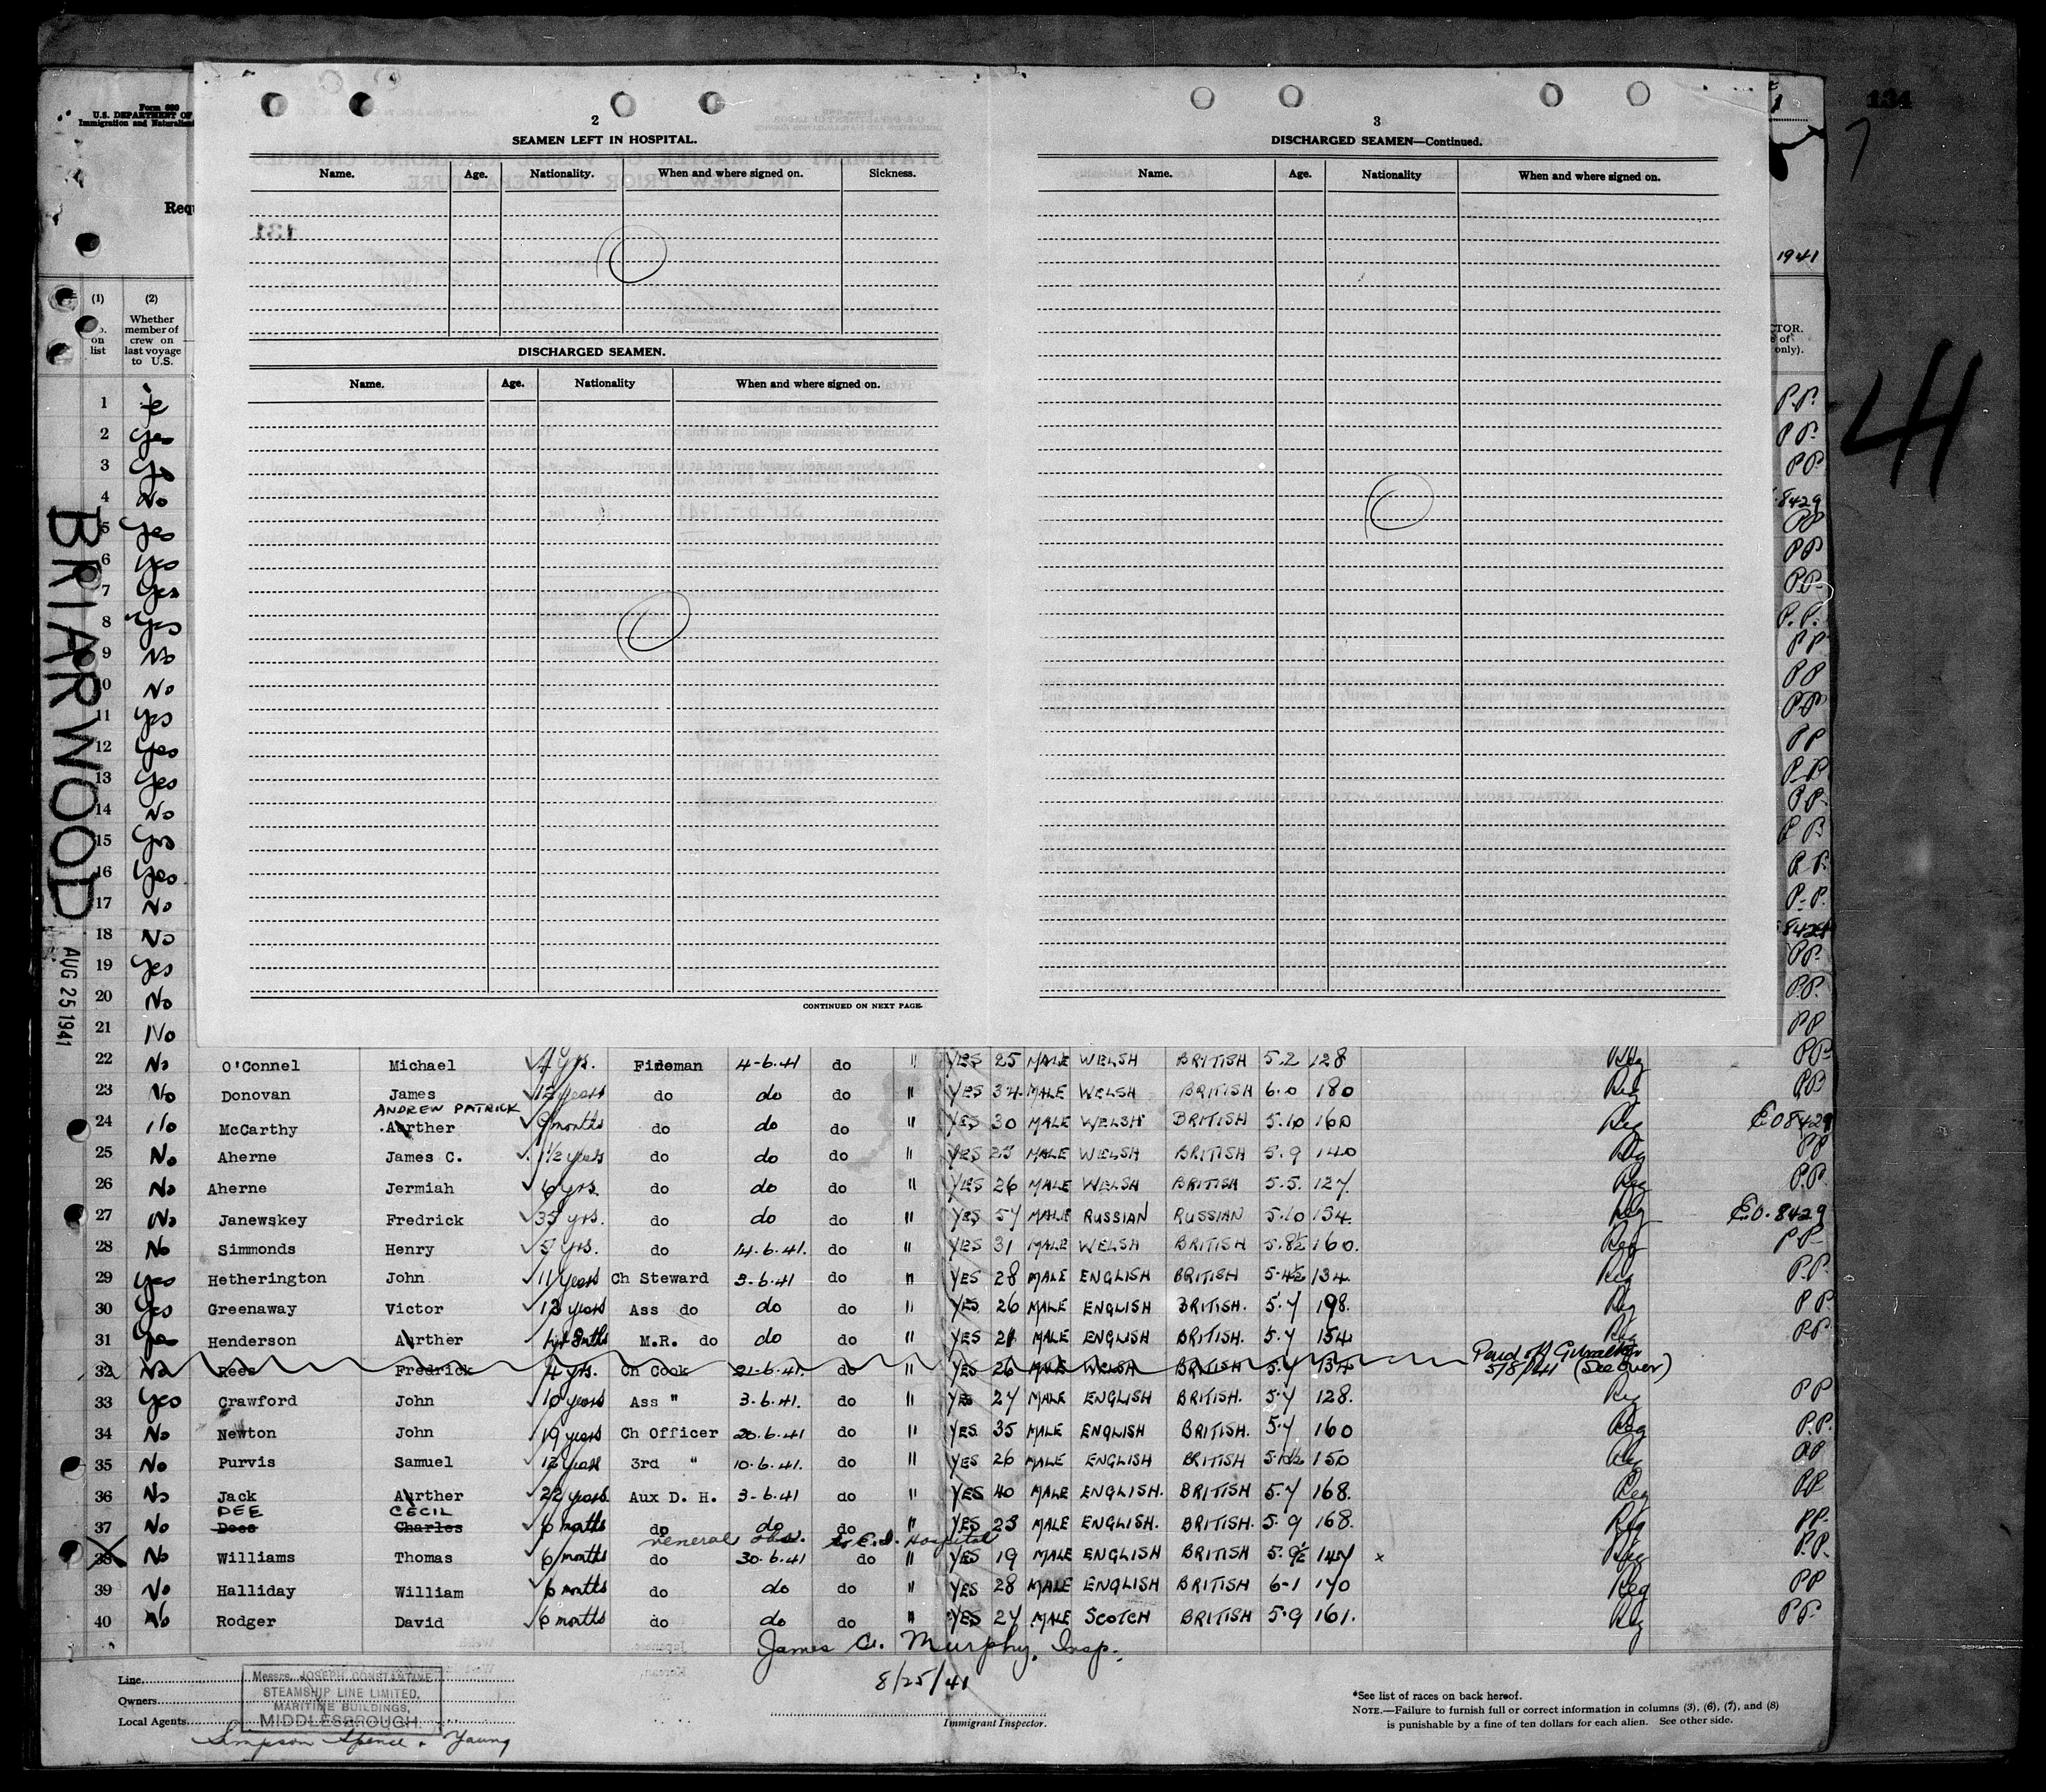 Form 680
U.S. DEPARTMENT OF
Immigration and Naturaliza
134
2
SEAMEN LEFT IN HOSPITAL.
Name. Age. Nationality. When and where signed on. Sickness.
DISCHARGED SEAMEN.
Name. Age. Nationality When and where signed on.
CONTINUED ON NEXT PAGE.
3
DISCHARGED SEAMEN—Continued.
Name. Age. Nationality When and where signed on.
1
1941
41
Requ
(1) (2)
on list
Whether member of crew on last voyage to U.S.
CTOR.
of
only).
BRIARWOOD
AUG 25 1941
1 P.P.
2 Yes P.P.
3 Yes PP
4 No 8429
5 Yes PP
6 Yes PP
7 Yes PP
8 Yes P.P.
9 No PP
10 No PP
11 Yes PP
12 Yes PP
13 Yes P.P
14 No PP
15 Yes P P
16 Yes P.P.
17 No P.P.
18 No 8429
19 Yes PP.
20 No PP.
21 No PP
22 No O'Connel Michael 4 yrs. Fireman 4-6.41 do " YES 25 MALE WELSH BRITISH 5.2 128 Reg PP
23 No Donovan James 12 years do do do " YES 34 MALE WELSH BRITISH 6.0 180 Reg PP
ANDREW PATRICK
24 No McCarthy Aurther 9 months do do do " YES 30 MALE WELSH BRITISH 5.10 160 Reg E.O 8429
25 No Aherne James C. 1 1/2 years do do do " YES 23 MALE WELSH BRITISH 5.9 140 Reg PP
26 No Aherne Jermiah 6 yrs. do do do " YES 26 MALE WELSH BRITISH 5.5. 127. Reg P.P.
27 No Janewskey Fredrick 35 yrs. do do do " YES 57 MALE RUSSIAN RUSSIAN 5.10 154. Reg E.O. 8429
28 No Simmonds Henry 5 yrs. do 14.6.41. do " YES 31 MALE WELSH BRITISH 5.8½ 160. Reg P.P.
29 Yes Hetherington John 11 years Ch Steward 3-6.41 do " YES 28 MALE ENGLISH BRITISH 5.4½ 134. Reg P.P.
30 Yes Greenaway Victor 13 years Ass do do do " YES 26 MALE ENGLISH BRITISH. 5.7 198. Reg P P.
31 Yes Henderson Aurther M.R. do do do " YES 21 MALE ENGLISH BRITISH. 5.7 154 Reg P.P.
32 No Rees Fredrick 4 yrs. Ch Cook 21-6.41. do " YES 26 MALE WELSH BRITISH 5.7 134 Paid off Gibraltar
5/8/41 (See over)
33 Yes Crawford John 10 years Ass " 3.6.41. do " YES 27 MALE ENGLISH BRITISH. 5.7 128. Reg PP
34 No Newton John 19 years Ch Officer 20.6.41 do " YES. 35 MALE ENGLISH BRITISH. 5.7 160 Reg P.P.
35 No Purvis Samuel 3rd " 10.6.41. do " YES 26 MALE ENGLISH BRITISH 150 Reg PP
36 No Jack Aurther 22 years Aux D. H. 3-6.41 do " YES 40 MALE ENGLISH. BRITISH 5.7 168. Reg PP
DEE CECIL
37 No Dees Charles 6 months do do do " YES 23 MALE ENGLISH. BRITISH 5.9 168. Reg PP.
General to E.I. Hospital
38 No Williams Thomas 6 months do 30.6.41 do " YES 19 MALE ENGLISH BRITISH 5.9½ 147 x Reg P.P.
39 No Halliday William 6 months do do do " YES 28 MALE ENGLISH BRITISH 6-1 170 Reg PP
40 No Rodger David 6 months do do do " YES 27 MALE SCOTCH BRITISH 5.9 161. Reg P.P.
James C. Murphy, Insp.
8/25/41
Immigrant Inspector.
Line
Owners
Local Agents
Messrs. JOSEPH CONSTANTINE
STEAMSHIP LINE LIMITED,
MARITIME BUILDINGS,
MIDDLESBROUGH.
Simpson Spence & Young
*See list of races on back hereof.
NOTE.—Failure to furnish full or correct information in columns (3), (6), (7), and (8)
is punishable by a fine of ten dollars for each alien. See other side.